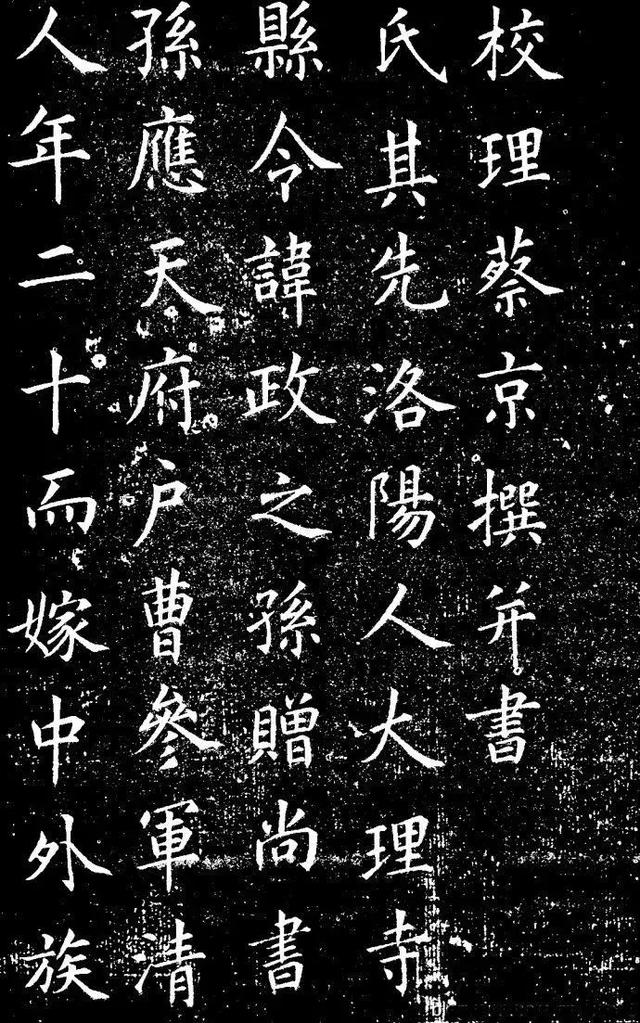 校理蔡京撰并書
氏其先洛陽人大理寺
縣令諱政之孫贈尚書
孫應天府户曹參軍清
人年二十而嫁中外族